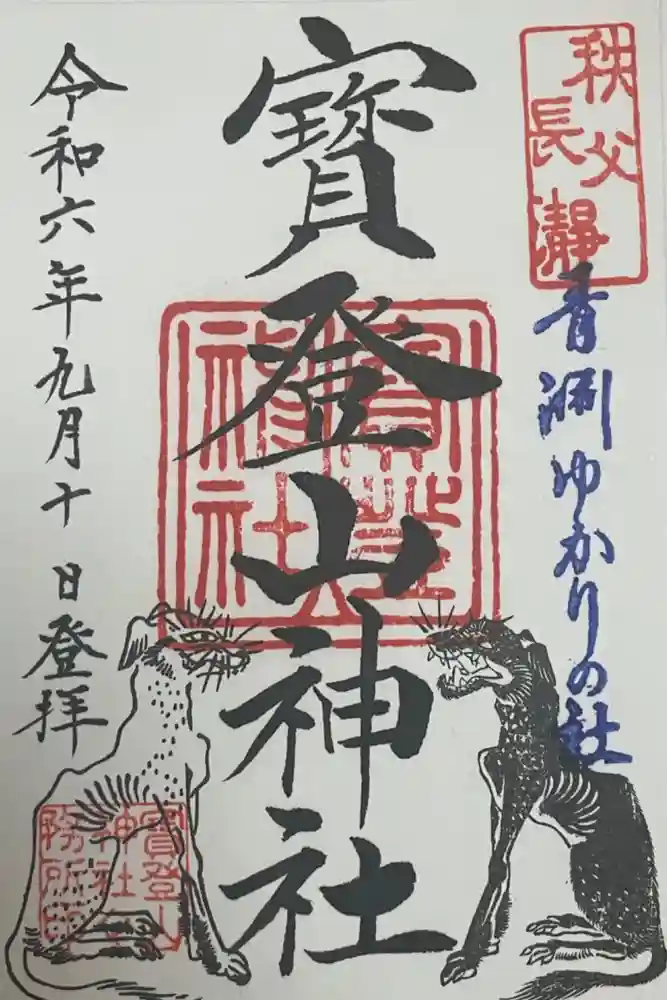 秩父
長瀞
青淵ゆかりの社
寳登山神社
寳登山
神社
寳登山
神社
務所印
令和六年九月十日登拝